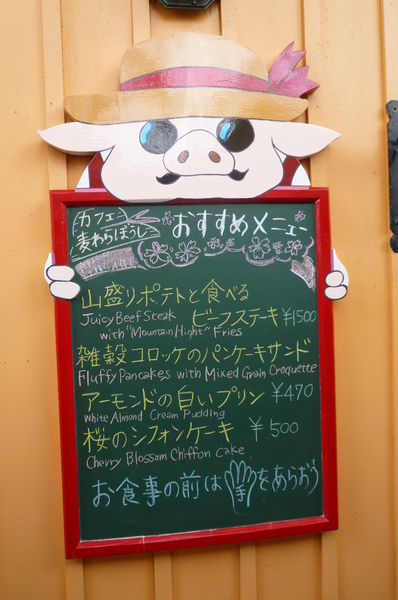 カフェ
麦わらぼうし
おすすめメニュー
山盛りポテトと食べる
Juicy Beef Steak ビーフステキ ¥1500
with "Mountain Hight" Fries
雑穀コロッケのパンケーキサンド
Fluffy Pancakes with Mixed Grain Croquette
アーモンドの白いプリン ¥470
White Almond Cream Pudding
桜のシフォンケーキ ¥500
Cherry Blossom Chiffon Cake
お食事の前は手をあらおう